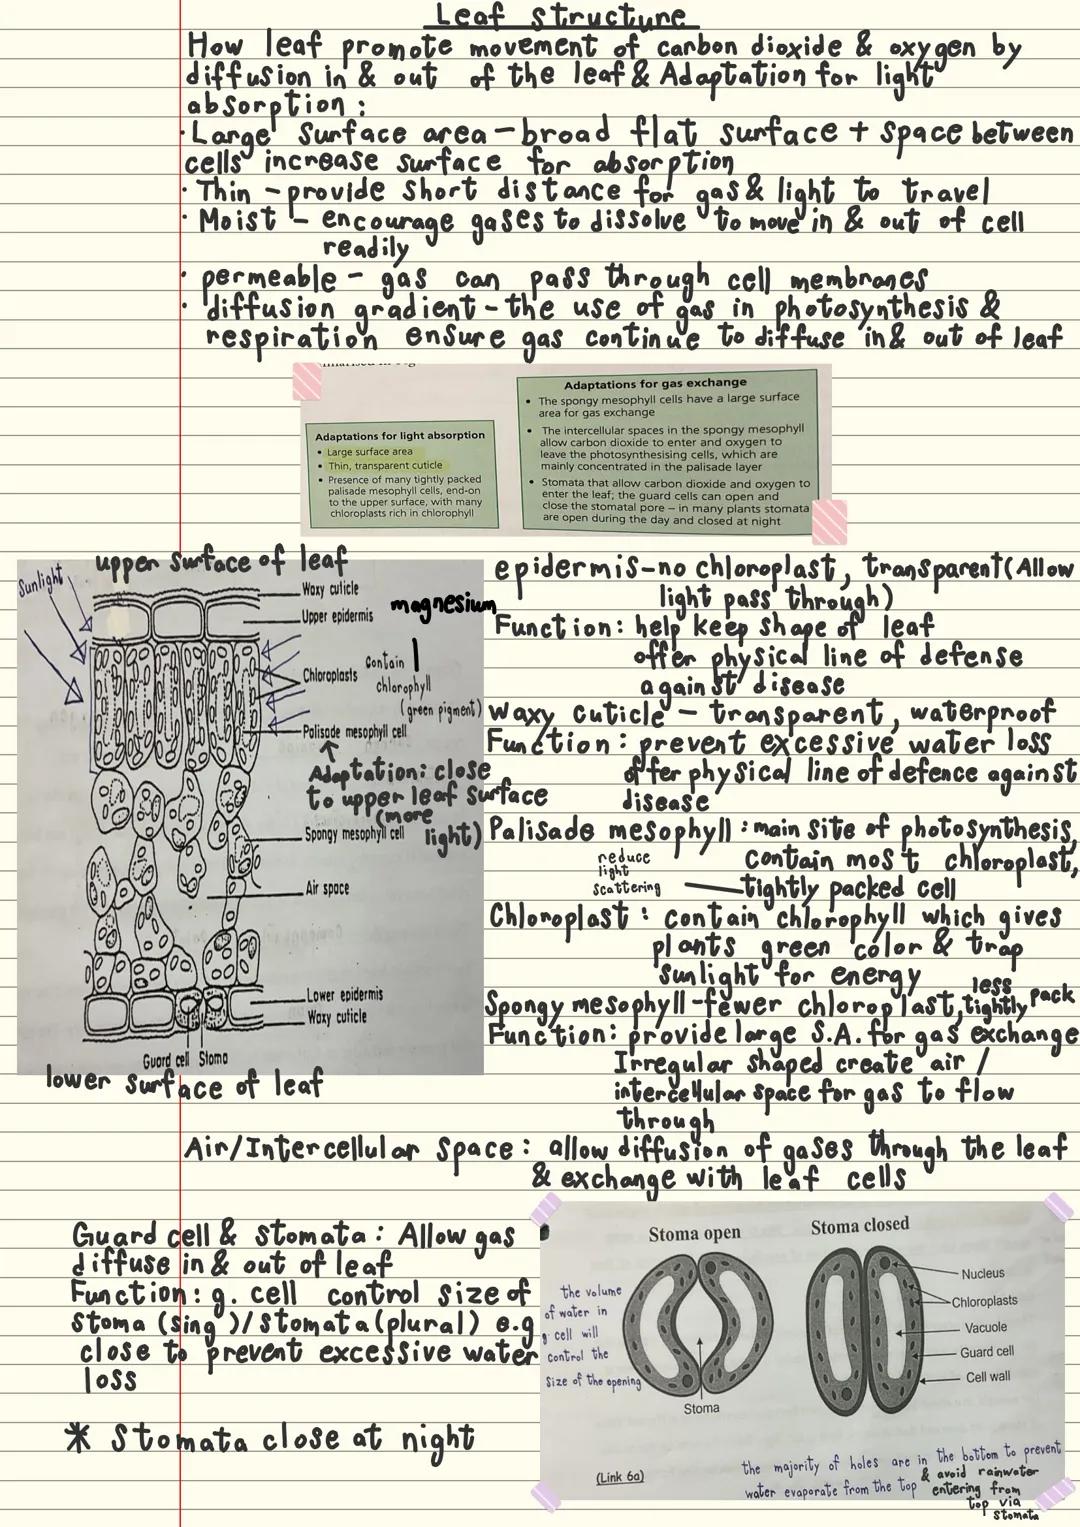 Leaf structure
How leaf promote movement of carbon dioxide & oxygen by
diffusion in & out of the leaf & Adaptation for light
absorption :
· Large Surface area – broad flat surface + space between
cells increase surface for absorption
· Thin – provide short distance for gas & light to travel
· Moist – encourage gases to dissolve to move in & out of cell
readily
· permeable – gas can pass through cell membranes
· diffusion gradient – the use of gas in photosynthesis &
respiration ensure gas continue to diffuse in & out of leaf
Adaptations for light absorption
• Large surface area
• Thin, transparent cuticle
• Presence of many tightly packed
palisade mesophyll cells, end-on
to the upper surface, with many
chloroplasts rich in chlorophyll
Adaptations for gas exchange
• The spongy mesophyll cells have a large surface
area for gas exchange
• The intercellular spaces in the spongy mesophyll
allow carbon dioxide to enter and oxygen to
leave the photosynthesising cells, which are
mainly concentrated in the palisade layer
• Stomata that allow carbon dioxide and oxygen to
enter the leaf; the guard cells can open and
close the stomatal pore – in many plants stomata
are open during the day and closed at night
upper surface of leaf
Sunlight
Waxy cuticle
magnesium
Upper epidermis
Chloroplasts
contain
chlorophyll
(green pigment)
Palisade mesophyll cell
Adaptation: close
to upper leaf surface
(more
light)
Spongy mesophyll cell
Air space
Lower epidermis
Waxy cuticle
Guard cell Stoma
lower surface of leaf
epidermis–no chloroplast, transparent (Allow
light pass through)
Function: help keep shape of leaf
offer physical line of defense
against disease
Waxy cuticle – transparent, waterproof
Function : prevent excessive water loss
offer physical line of defence against
disease
Palisade mesophyll : main site of photosynthesis,
contain most chloroplast,
reduce
light
scattering
tightly packed cell
Chloroplast : contain chlorophyll which gives
plants green color & trap
sunlight for energy
Spongy mesophyll – fewer chloroplast, less tightly pack
Function: provide large S.A. for gas exchange
Irregular shaped create air /
intercellular space for gas to flow
through
Air/Intercellular Space : allow diffusion of gases through the leaf
& exchange with leaf cells
Guard cell & stomata : Allow gas
diffuse in & out of leaf
Function : g. cell control size of
stoma (sing)/stomata (plural) e.g
close to prevent excessive water
loss
* Stomata close at night
Stoma open
Stoma closed
the volume
of water in
g cell will
control the
size of the opening
Stoma
Nucleus
Chloroplasts
Vacuole
Guard cell
Cell wall
(Link 6a)
the majority of holes are in the bottom to prevent
water evaporate from the top & avoid rainwater
entering from
top via
stomata